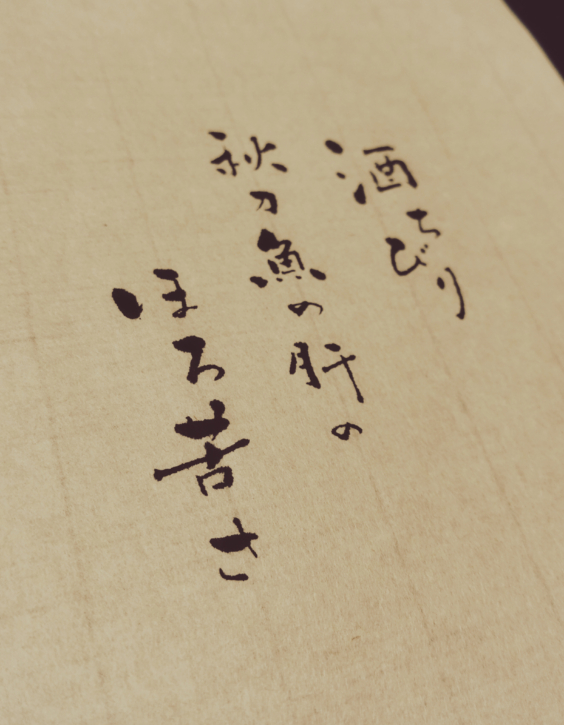 酒ちびり
秋刀魚の肝の
ほろ苦さ